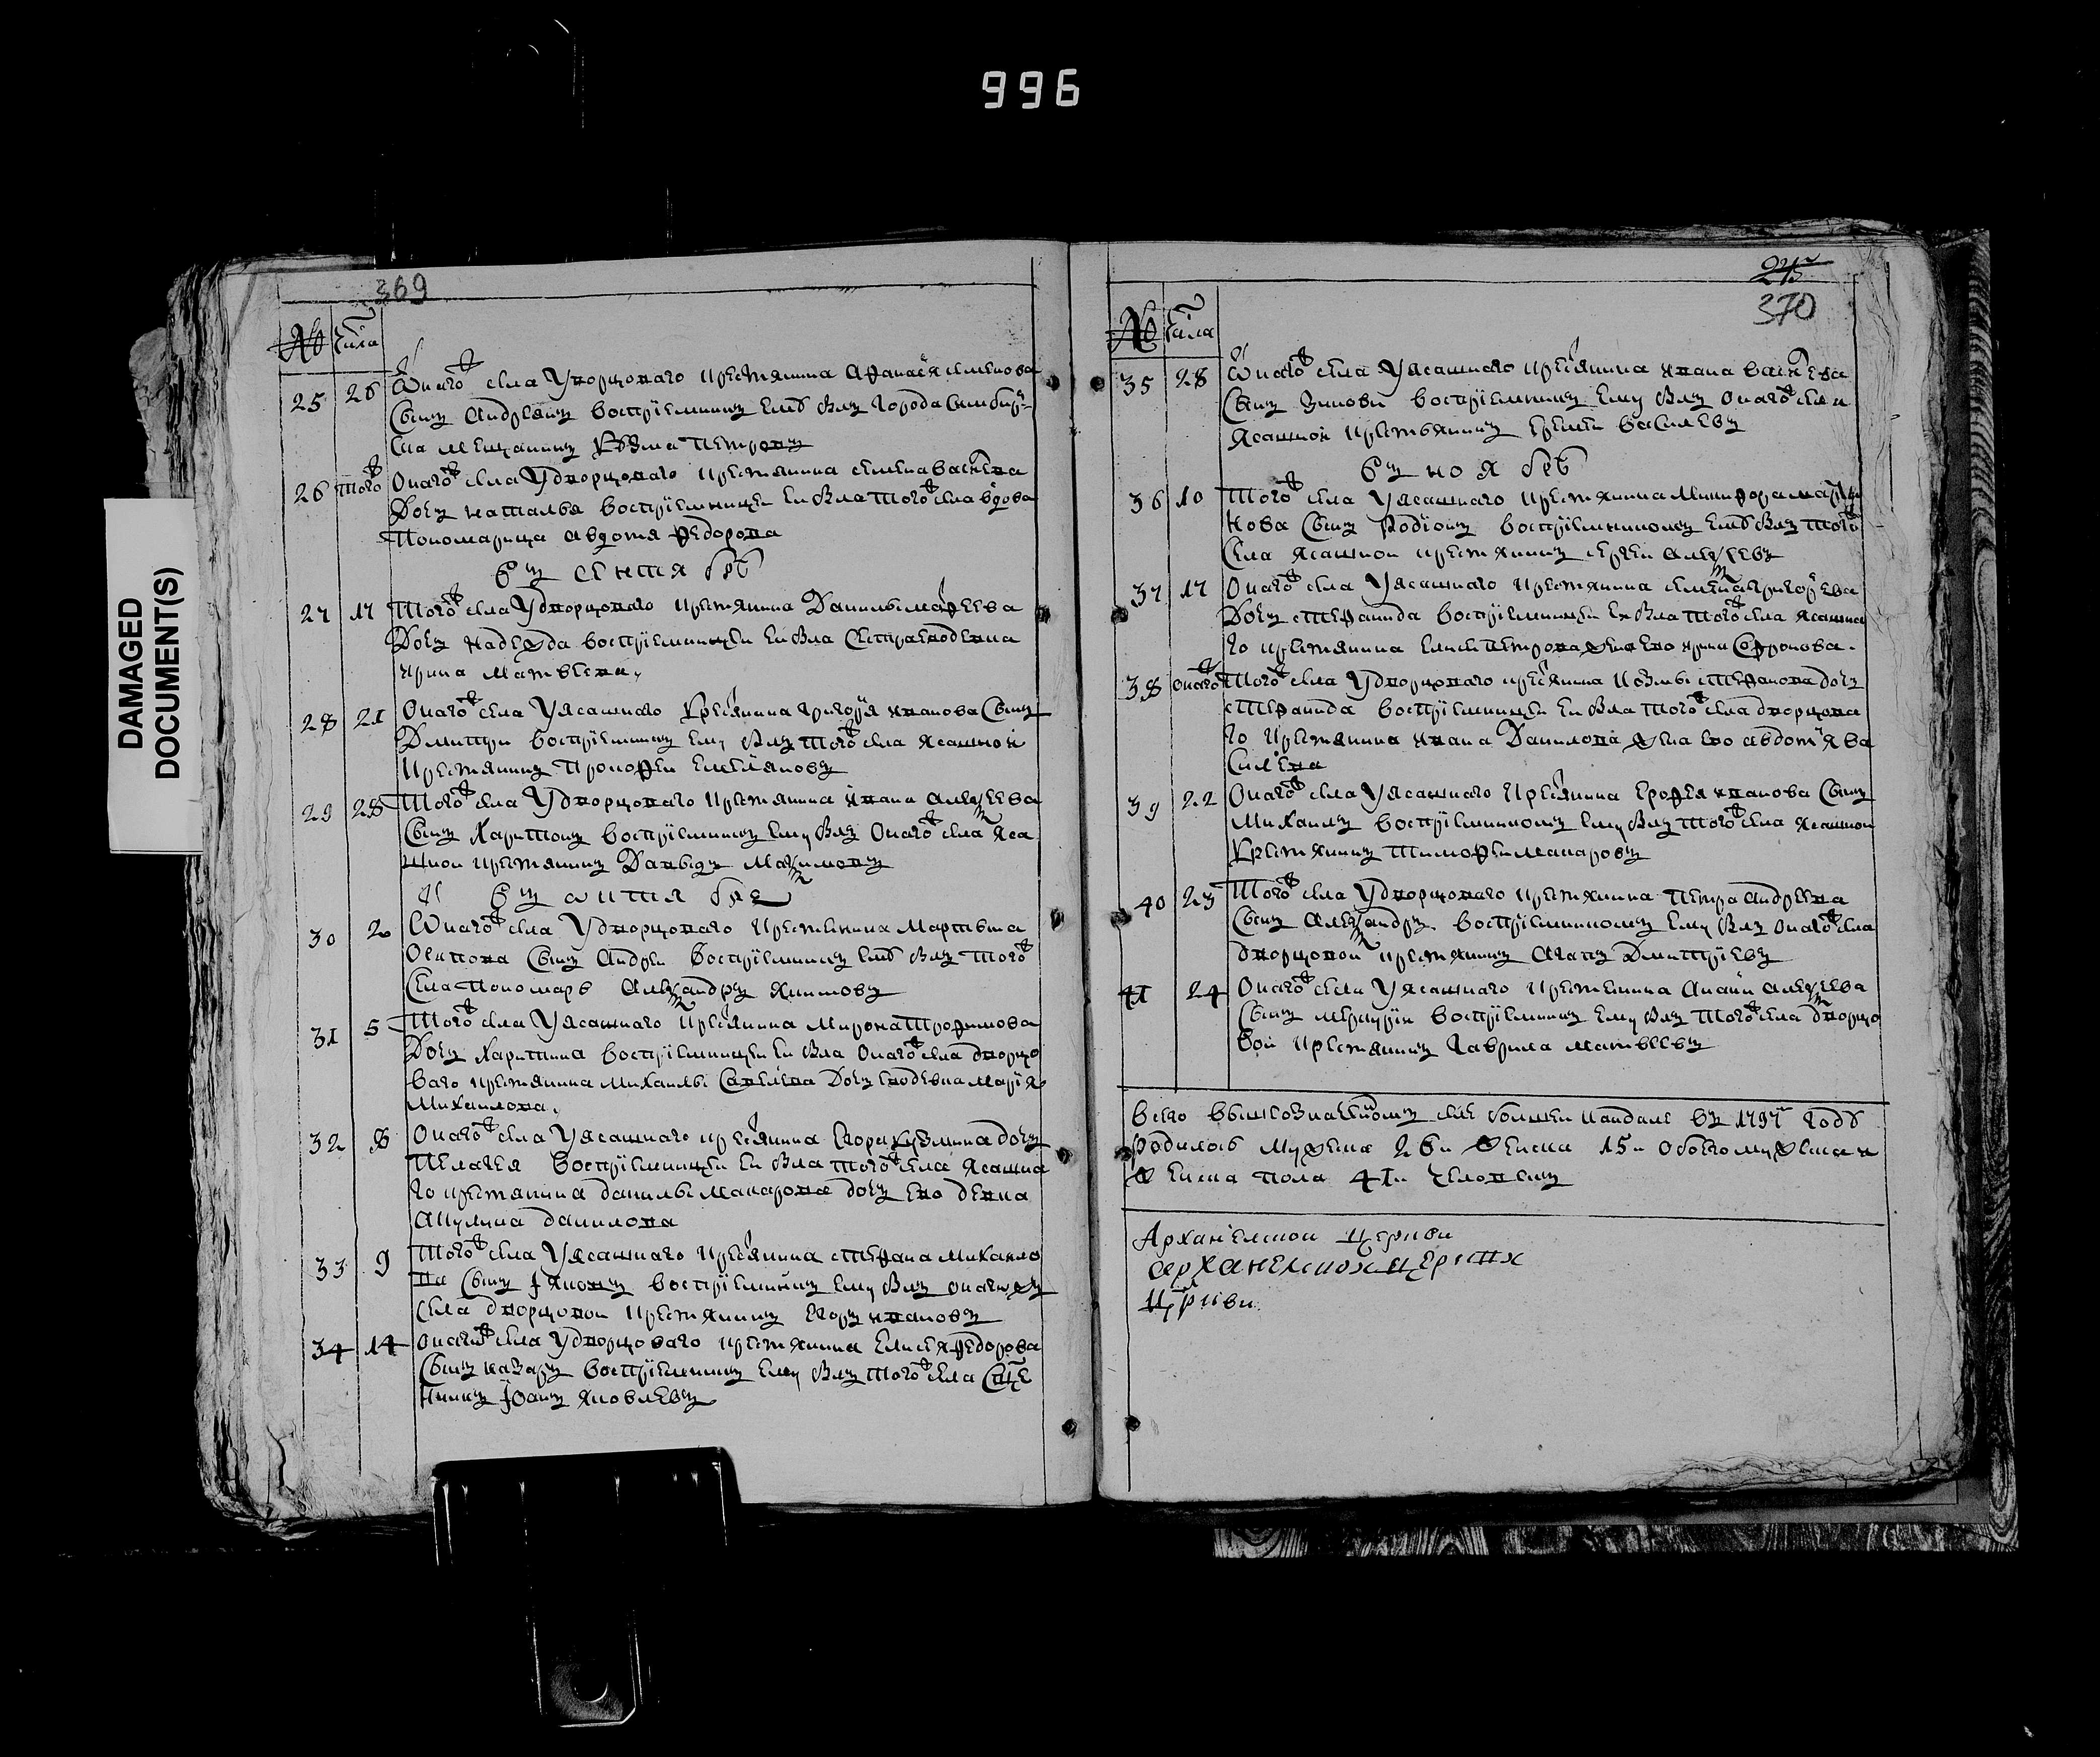 996
DAMAGED
DOCUMENT(S)
369
№ числа
25 26 Онагоже села Удворцоваго крестьянина Афанасея Семенова
сынъ Андреянъ восприемникъ емб былъ города Симбир-
ска мещанинъ Козма Петровъ
26 тогоже Онагоже села Удворцоваго крестьянина Семена Василева
дочь Наталья восприемницеи еи была тогоже села вдова
пономарица Авдотя Федорова
въ сентя брб
27 17 Тогоже села Удворцоваго крестьянина Данилы Мафеева
дочь Надежда восприемницеи еи была сестра еводевка
Ирина Матвеева,
28 21 Онагоже села Уясашнаго крестянина Григоря Иванова сынъ
Дмитри восприемникъ ему былъ тогоже села ясашнои
крестянинъ Прокофеи Емеляновъ
29 28 Тогоже села Удворцоваго крестянина Ивана Алексеева
сынъ Харитонъ восприемникъ ему былъ Онагоже села яса
шнои крестянинъ Давыдъ Максимовъ
въ октя бре
30 2 Онагоже села Удворцоваго крестенина Мартына
Осипова сынъ Андреи восприемникъ емб былъ того же
села пономарь Александръ Якимовъ
31 5 Тогоже села Уясашнаго крестянина Мирона Трофимова
дочь Харитина восприемницеи еи была Онагоже села дворцо
ваго крестянина Михаилы Савелева дочь еводевка Маря
Михаилова,
32 8 Онагоже села Уясашнаго крестянина Егора Кузмина дочь
Пелагея восприемницеи еи была тогоже села ясашна
го крестянина Данилы Макарова дочь ево девка
Акулина Данилова
33 9 Тогоже села Уясашнаго крестянина Степана Михаило
ва сынъ Яковъ восприемникъ ему былъ онагожъ
села дворцовои крестянинъ Егоръ Ивановъ
34 14 Онагоже села Удворцоваго крестянина Елисея Федорова
сынъ Назаръ восприемникъ ему былъ тогоже села сще
нникъ Iоанъ Яковлевъ
275
370
№ числа
35 28 Онагоже села Уясашнаго крестянина Ивана Василева
сынъ Зиновеи восприемникъ ему былъ Онагоже села
ясашнои крестьянинъ Еремеи Василевъ
въ ноя брб
36 10 Тогоже села Уясашнаго крестянина Никифора Марты
нова сынъ Родионъ восприемникомъ емб былъ того
села ясашнои крестянинъ Сергеи Алексеевъ
37 17 Онагоже села Уясашнаго крестянина Семена Григорева
дочь Степанида восприемницеи еи была тогоже села ясашна
го крестянина Елисея Петрова жена ево Ирина Софронова.
38 онагоже Тогоже села Удворцоваго крестянина Козмы Степанова дочь
Степанида восприемницеи еи была тогоже села дворцова
го крестянина Ивана Данилова жена ево Авдотя Ва
силева
39 22 Онагоже села Уясашнаго крестянина Ерофея Иванова сынъ
Михаилъ восприемникомъ ему былъ тогоже села ясашнои
крестянинъ Тимофеи Макаровъ
40 23 Тогоже села Удворцоваго крестянина Петра Андреева
сынъ Александръ восприемникомъ ему былъ онагоже села
дворцовои крестянинъ Агапъ Дмитриевъ
41 24 Онагоже села Уясашнаго крестенина Анани Алексеева
сынъ Меркуреи восприемникъ ему былъ тогоже села дворцо
вои крестянинъ Гаврила Матвеевъ
всего въ 1797 годб
родилось мужеска 26и женска 15и обоего мужеска и
женска пола 41и человекъ
Архангелскои церкви
архангелскои церкви
церкви